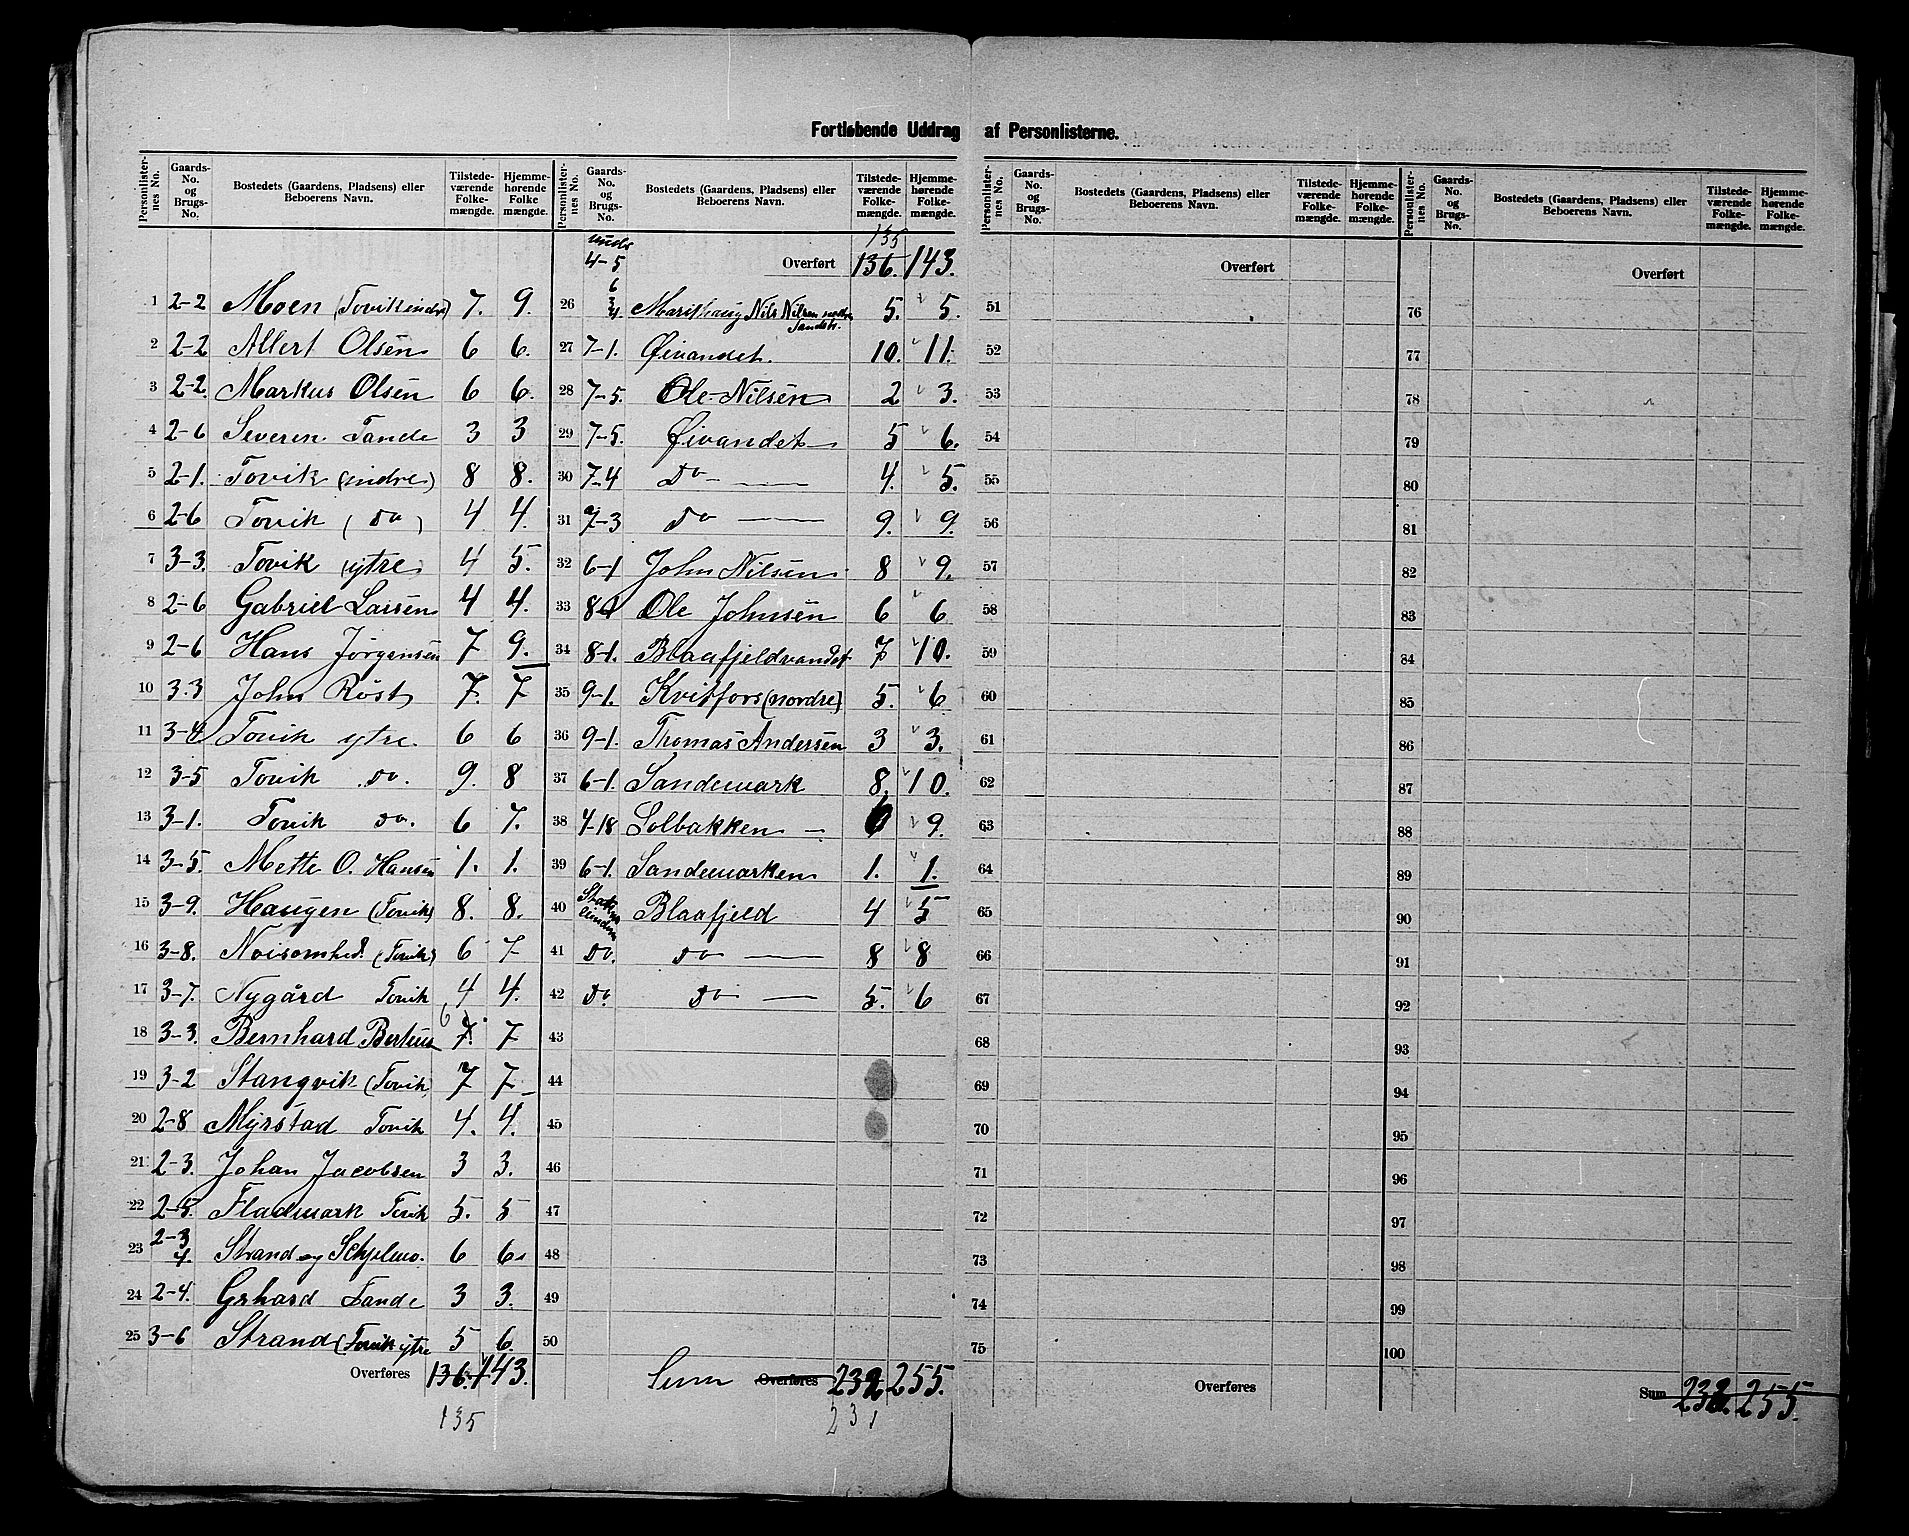 Fortløbende Uddrag af Personlisterne.
Personlister-nes No. | Gaards-No. og Brugs-No. | Bostedets (Gaardens, Pladsens) eller Beboerens Navn. | Tilstede-værende Folke-mængde. | Hjemme-hørende Folke mængde.
1 2-2 Moen (Tovik indre) 7. 9.
2 2-2 Albert Olsen 6 6.
3 2-2. Markus Olsen 6 6.
4 2-6 Severen Tande 3 3
5 2-1. Tovik (indre) 8 8.
6 2-6 Tovik (do) 4 4.
7 3-3. Tovik (ytre) 4 5.
8 2-6 Gabriel Larsen 4 4.
9 2-6 Hans Jørgensen 7 9.
10 3-3 John Röst 7. 7
11 3-4 Tovik ytre. 6 6
12 3-5 Tovik do. 9. 8
13 3-1. Tovik do. 6 7.
14 3-5. Mette O. Hansen 1. 1.
15 3-9. Haugen (Tovik) 8. 8.
16 3-8. Noisomhed (Tovik) 6 7
17 3-7. Nygård Tovik 4 4.
18 3-3. Bernhard Berteus 6 7. 7
19 3-2 Stangvik (Tovik) 7 7
20 2-8 Myrstad Tovik 4. 4.
21 2-3. Johan Jacobsen 3 3.
22 2-5. Fladmark Tovik 5. 5
23 2-3 4. Strand og 6 6
24 2-4. Gerhard Tande 3 3.
25 3-6 Strand (Tovik ytre 5 6.
Overføres 136. 143.
135
Personlister-nes No. | Gaards-No. og Brugs-No. | Bostedets (Gaardens, Pladsens) eller Beboerens Navn. | Tilstede-værende Folke-mængde. | Hjemme-hørende Folke-mængde.
135
4-5 Overført 136. 143.
26 6 3/4 Marithaug Nils Nilsen 5. 5.
27 7-1. Øivandet. 10. 11.
28 7-5. Ole Nilsen 2 3.
29 7-5. Øivandet 5 6.
30 7-4 Do 4. 5.
31 7-3 Do 9. 9.
32 6-1 John Nilsen 8 9.
33 8-1 Ole Johnsen 6 6
34 8-1. Blaafjeldvandet 7 10.
35 9-1. Kvitfors (nordre) 5. 6
36 9-1. Thomas Andersen 3 3.
37 6-1. Sandemark 8. 10.
38 4-18 Solbakken 6 9.
39 6-1. Sandemarken 1. 1.
40 Blaafjeld 4 5
41 Do. do 8 8
42 Do. Do 5. 6
43
44
45
46
47
48
49
50
Sum Overføres 232 255.
231
Personlister-nes No. | Gaards-No. og Brugs-No. | Bostedets (Gaardens, Pladsens) eller Beboerens Navn. | Tilstede-værende Folke-mængde. | Hjemme-hørende Folke-mængde.
Overført
51
52
53
54
55
56
57
58
59
60
61
62
63
64
65
66
67
68
69
70
71
72
73
74
75
Overføres
Personlister-nes No. | Gaards-No. og Brugs-No. | Bostedets (Gaardens, Pladsens) eller Beboerens Navn. | Tilstede-værende Folke-mængde. | Hjemme-hørende Folke-mængde.
Overført
76
77
78
79
80
81
82
83
84
85
86
87
88
89
90
91
92
93
94
95
96
97
98
99
100
Sum 232. 255.